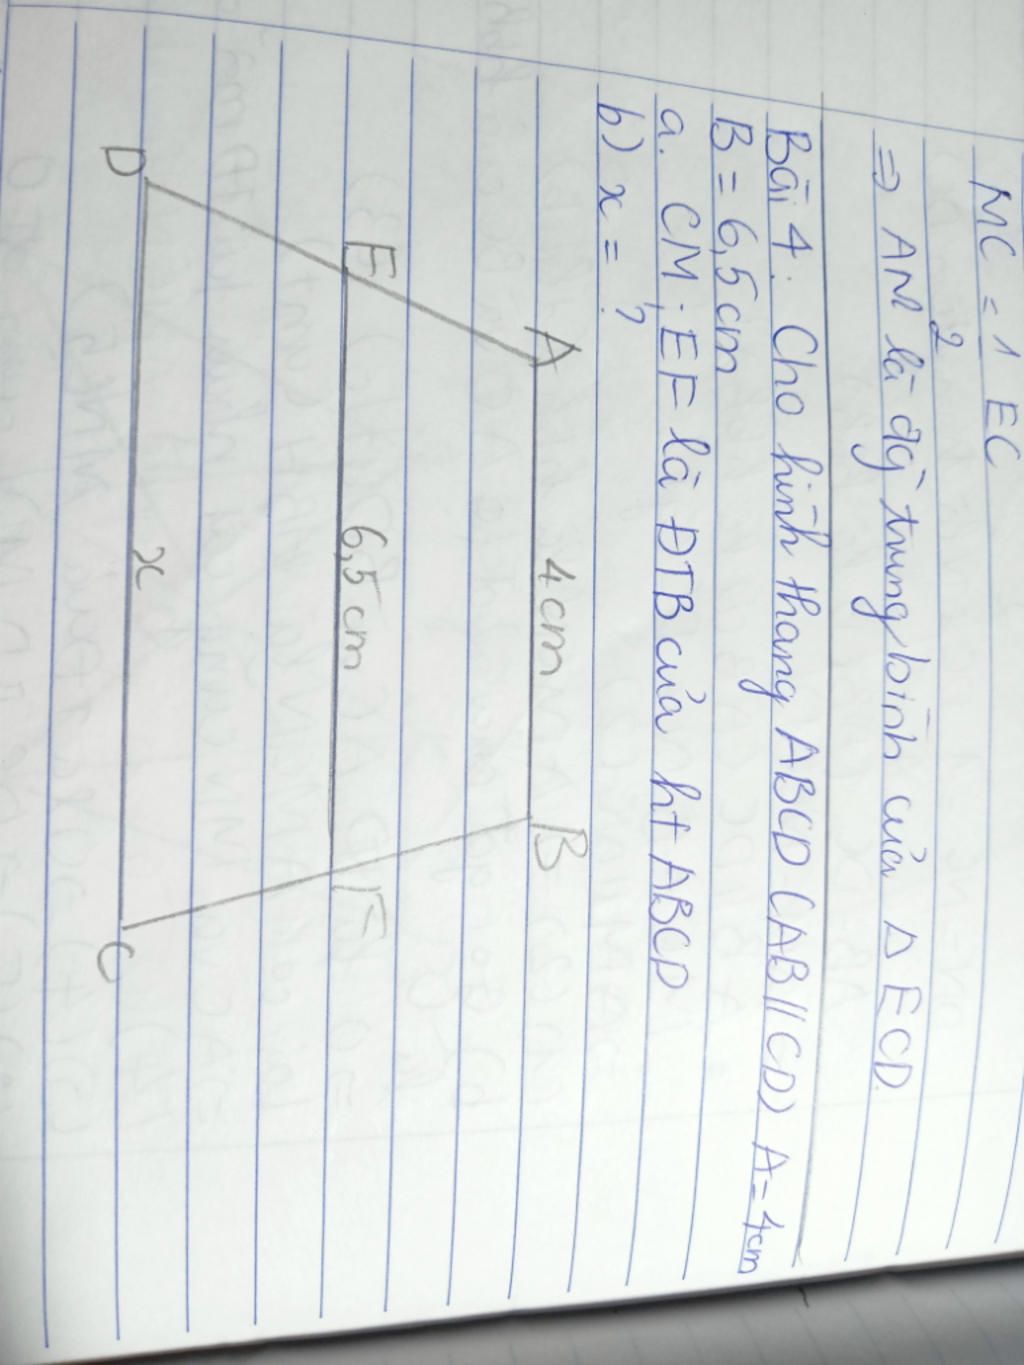 MC = 1 EC
2
⇒ AM là đg trung bình của Δ ECD.
Bài 4: Cho hình thang ABCD (AB // CD) A = 4cm
B = 6,5cm
a. CM: EF là ĐTB của ht ABCD
b) x = ?
A 4cm B
E 6,5cm F
D x C